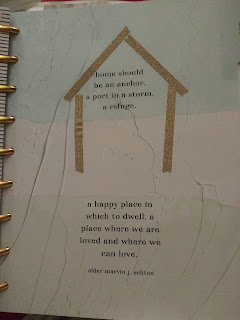 home should
be an anchor.
a port in a storm.
a refuge.
a happy place in
which to dwell. a
place where we are
loved and where we
can love.
- elder marvin j. ashton